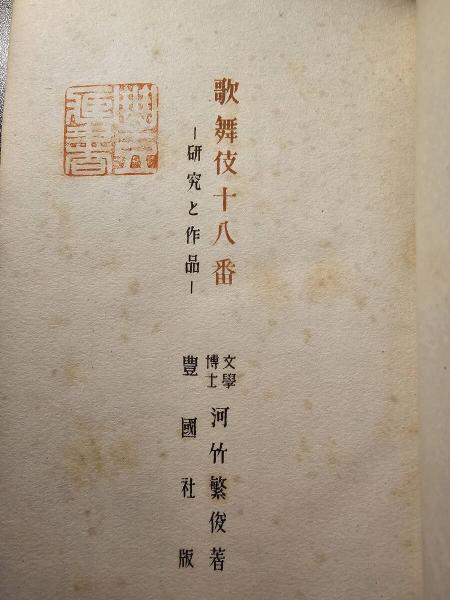 歌舞伎十八番
―研究と作品―
文學博士 河竹繁俊著
豐國社版